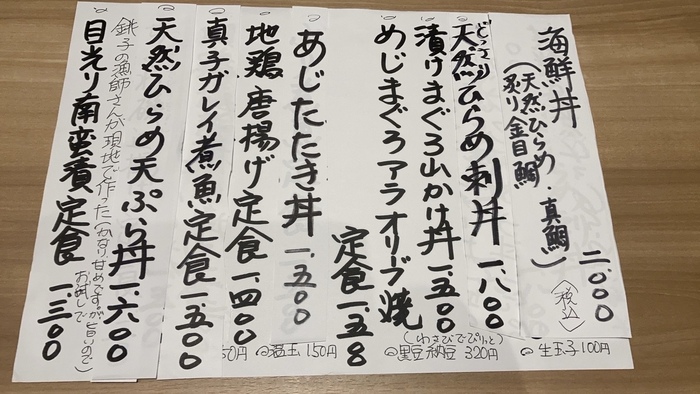 海鮮丼
（天然ひらめ・真鯛
炙り金目鯛）
二、000
（税込）
どっさり
天然ひらめ刺丼 一、八00
漬けまぐろ山かけ丼 一、五00
（わさびでぴりっと）
めじまぐろアラオリーブ焼
定食 一、五八
あじたたき丼 一、五00
地鶏 唐揚げ定食 一、四00
真子ガレイ煮魚定食 一、五00
天然ひらめ天ぷら丼 一、六00
銚子の漁師さんが現地で作った（かなり甘めですが旨いので
お試しで）
目光り南蛮漬定食 一、三00
50円 温玉 150円 黒豆納豆 320円 生玉子 100円